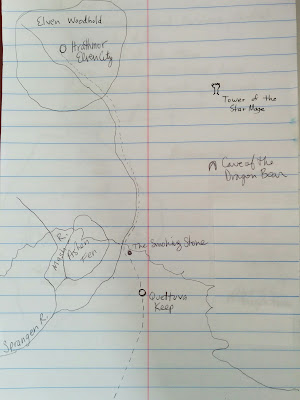 Elven Woodhold
Arathnor
Elven City
Tower of the
Star Mage
Cave of the
Dragon Bear
R.
Ashen
Fen
The Smoking Stone
Keep
Sprangen R.